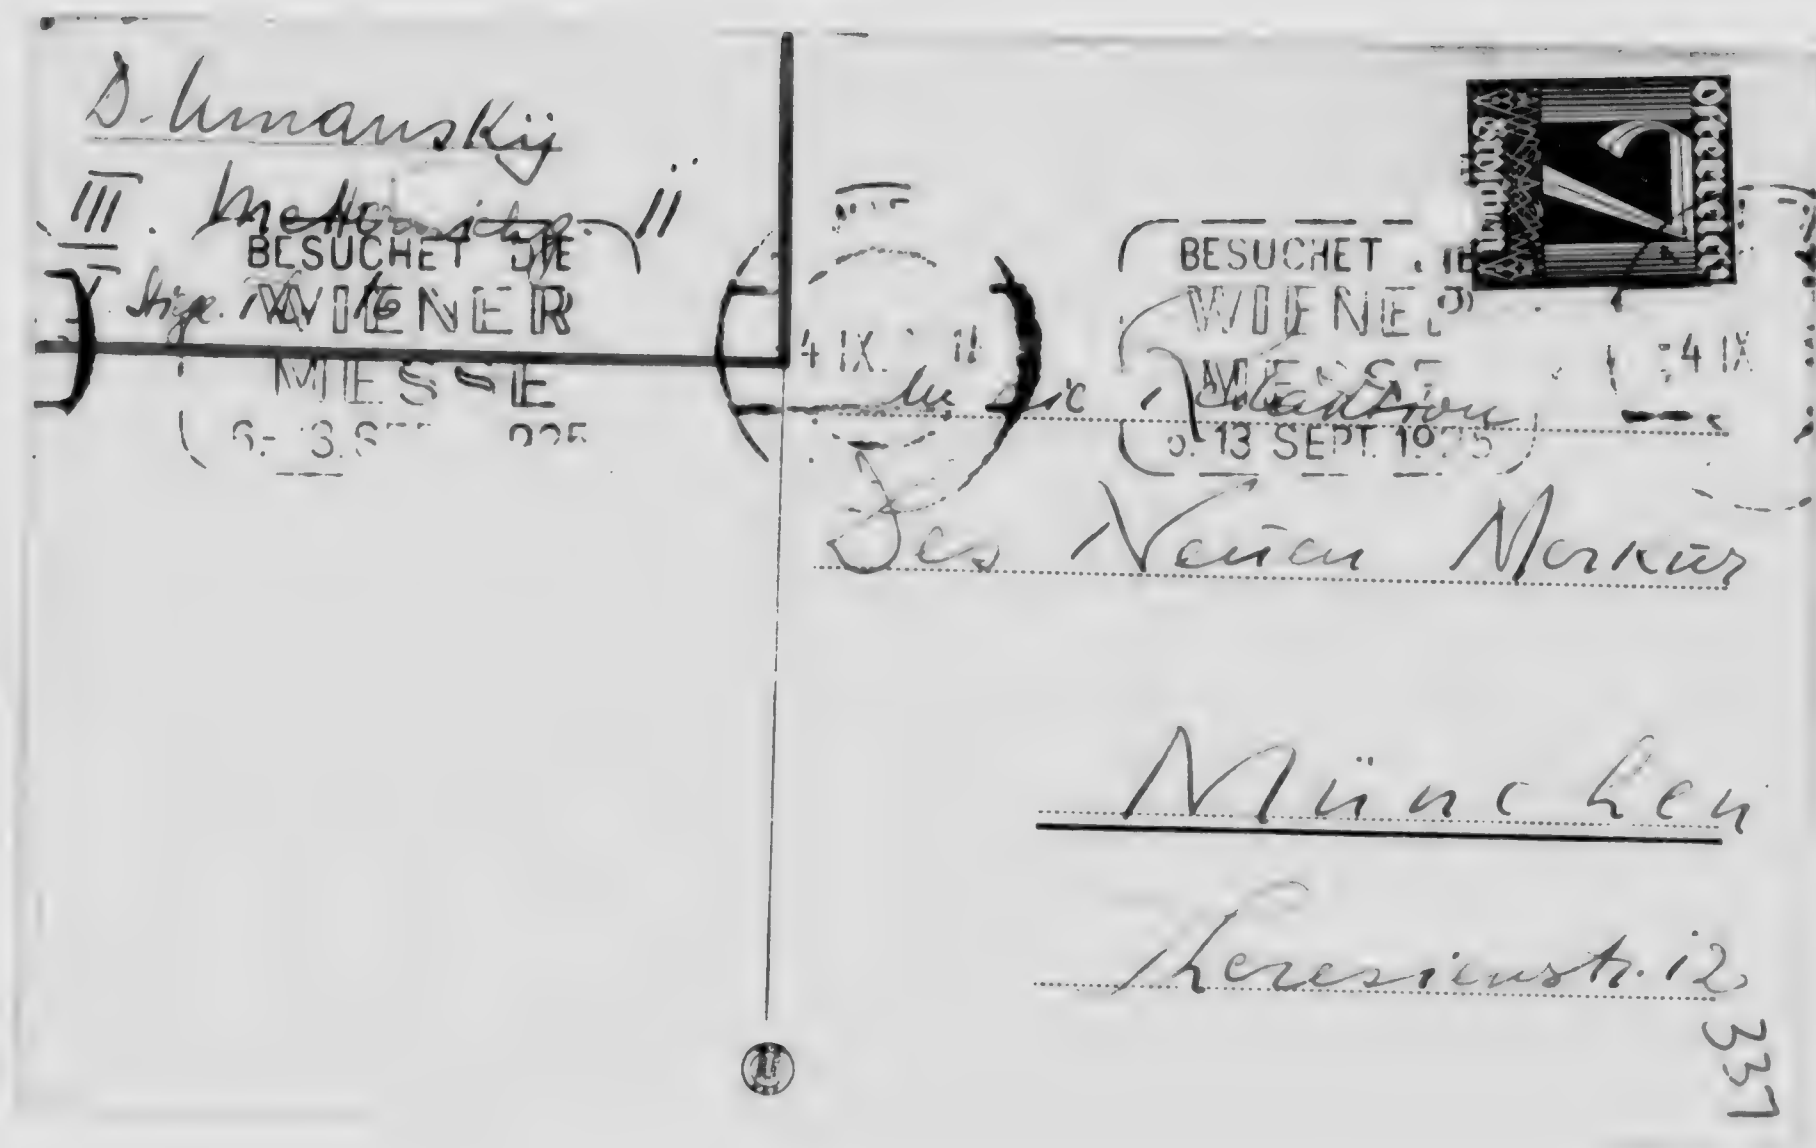 D. Umanskij
III. Metternichg. 11
Stiege
BESUCHET DIE
WIENER
MESSE
6.-13. SEPT. 1925
4 IX.
BESUCHET DIE
WIENER
MESSE
6.-13 SEPT. 1925
4 IX
Österreich
7
An die Redaktion
Des Neuen Merkur
München
Theresienstr. 12
337